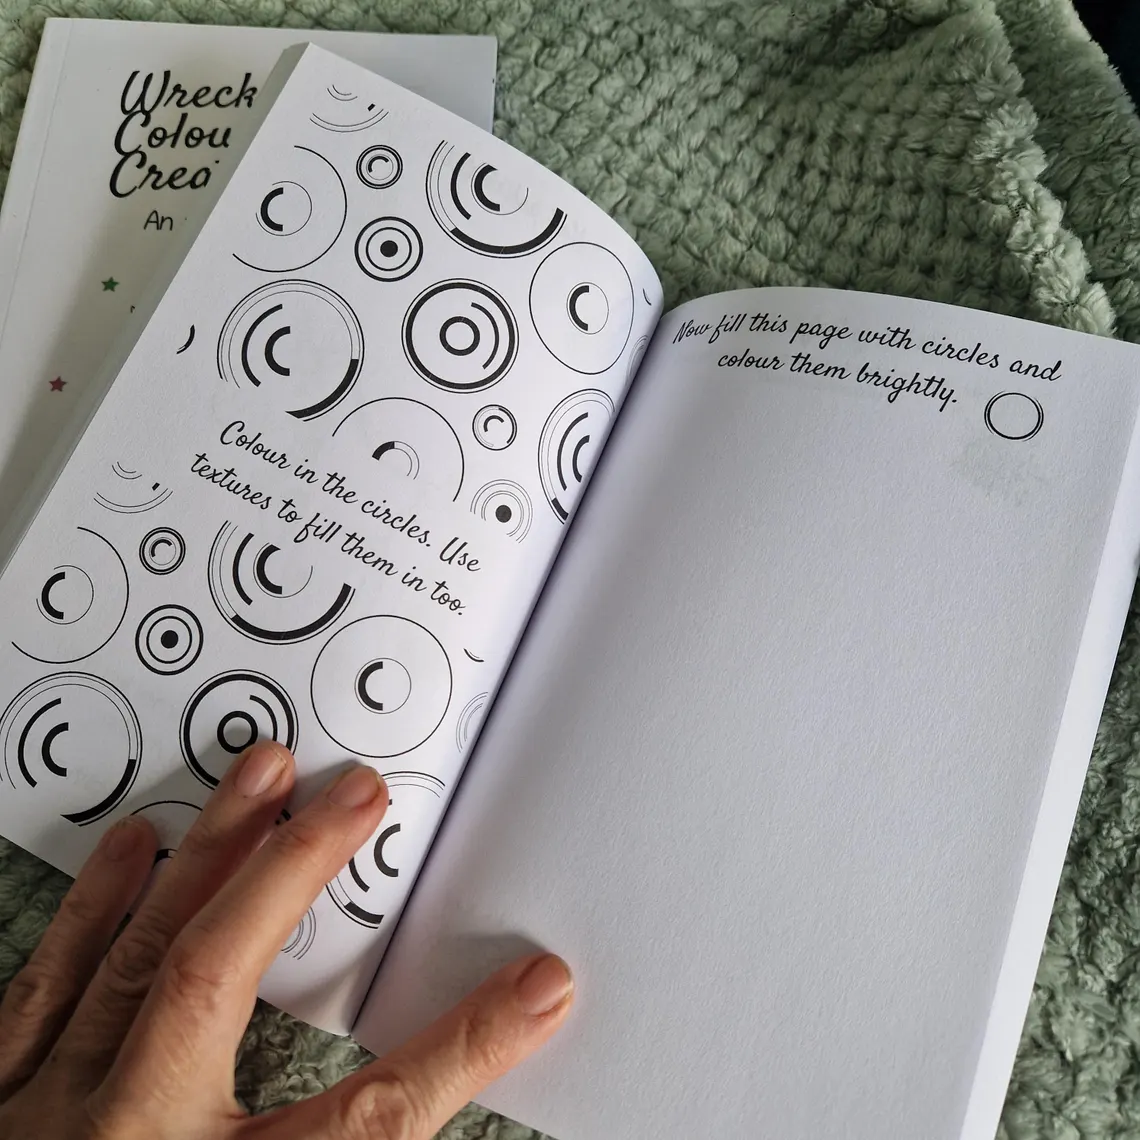 Wreck
Colou
Crea
An
Colour in the circles. Use
textures to fill them in too.
Now fill this page with circles and
colour them brightly.